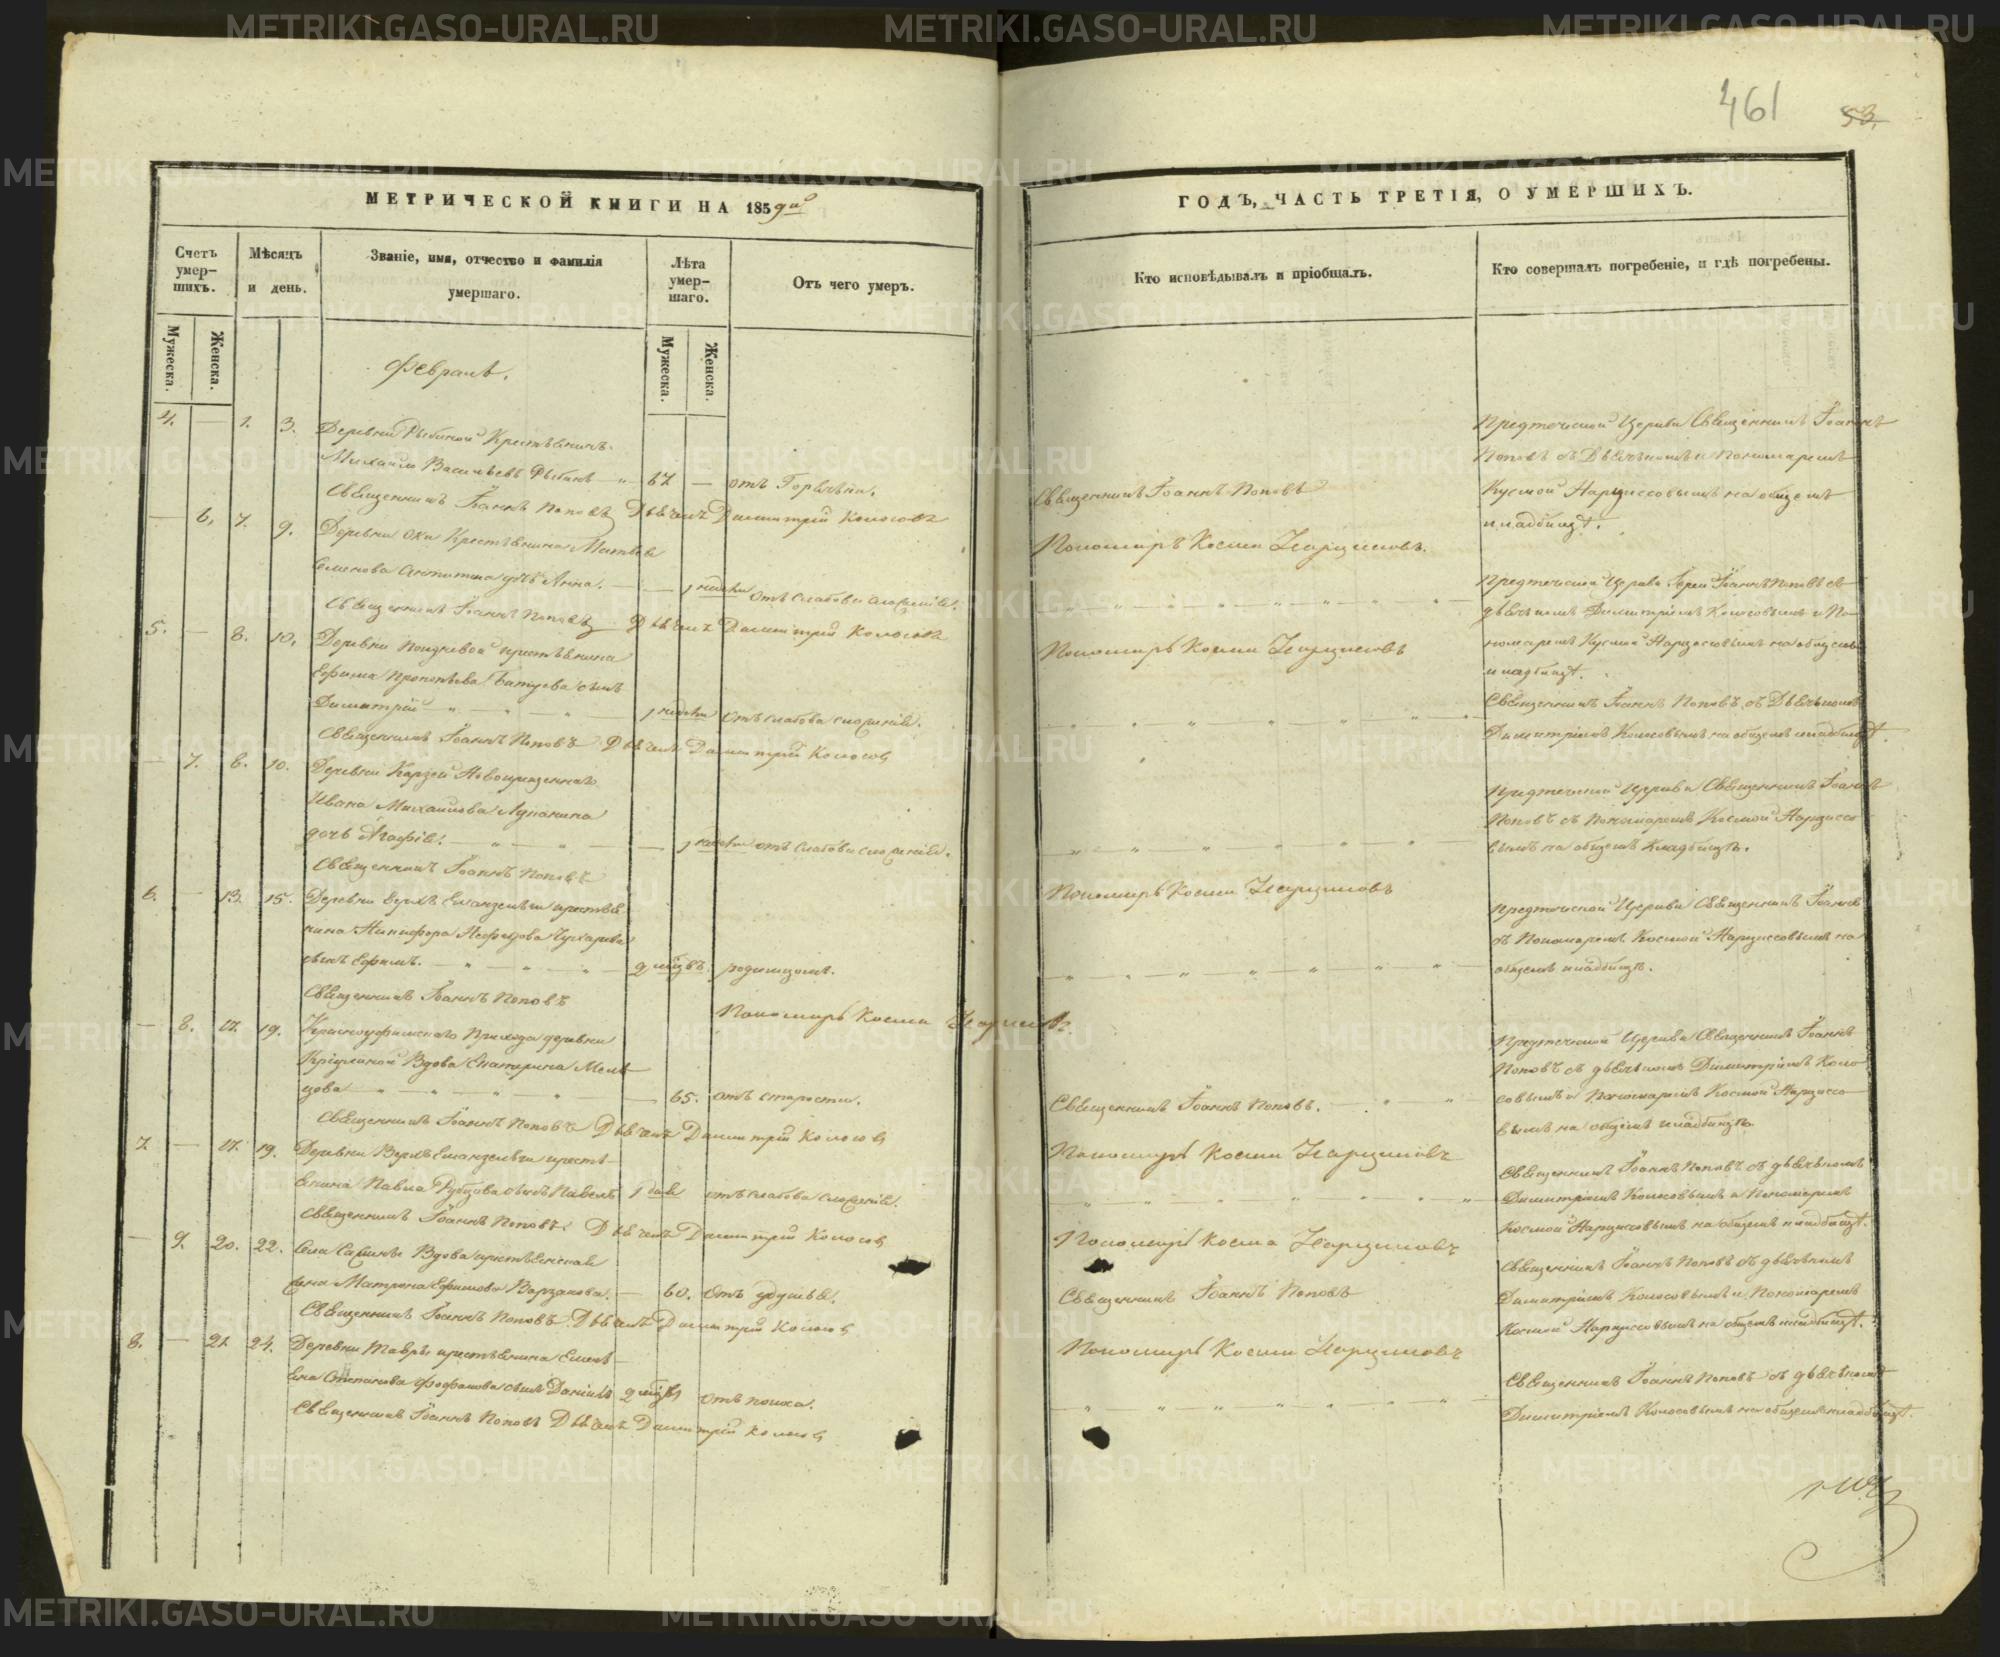 461
53.
МЕТРИЧЕСКОЙ КНИГИ НА 1859й
ГОДЪ, ЧАСТЬ ТРЕТІЯ, О УМЕРШИХЪ.
Счетъ умер-шихъ.
Мѣсяцъ и день.
Званіе, имя, отчество и фамилія умершаго.
Лѣта умер-шаго.
Отъ чего умеръ.
Кто исповѣдывалъ и пріобщалъ.
Кто совершалъ погребеніе, и гдѣ погребены.
Мужеска.
Женска.
Мужеска.
Женска.
Февраль.
4. — 1. 3. Деревни Рыбиной Крестьянинъ
Михаилъ Васильевъ Рыбинъ — 67 — отъ Горячки.
Священникъ Іоаннъ Поповъ
Предтечиской Церкви Священникъ Іоаннъ
Поповъ съ Дьячкомъ и Пономаремъ
Кусмой Нарциссовымъ на общемъ
кладбищѣ.
Священникъ Іоаннъ Поповъ Дьячекъ Димитрій Колосовъ
Пономарь Косма Нарцисовъ.
— 6. 7. 9. Деревни Ока Крестьянина Матвѣя
Семенова Антипина дочь Анна. — 1 недѣли отъ слабова сложенія.
Предтечиской Церкви Іерей Іоаннъ Поповъ съ
дьячкомъ Димитріемъ Колосовымъ и По-
номаремъ Кусмой Нарцисовымъ на общемъ
кладбищѣ.
Священникъ Іоаннъ Поповъ Дьячекъ Димитрій Колосовъ
Пономарь Косма Нарцисовъ
5. — 8. 10. Деревни крестьянина
Ефима Прокопьева сынъ
Димитрій — 1 недѣли отъ слабова сложенія.
Священникъ Іоаннъ Поповъ съ Дьячкомъ
Димитріемъ Колосовымъ на общемъ кладбищѣ.
Священникъ Іоаннъ Поповъ Дьячекъ Димитрій Колосовъ
— 7. 8. 10. Деревни
Ивана Михайлова Лупанина
дочь Агафія. — 1 недѣли отъ слабова сложенія.
Предтечиской Церкви Священникъ Іоаннъ
Поповъ съ Пономаремъ Космой Нарциссо
вымъ на общемъ Кладбищѣ.
Священникъ Іоаннъ Поповъ
Пономарь Косма Нарцисовъ
6. — 13. 15. Деревни Верхъ крестья
нина Никифора
сынъ Ефимъ. — 2 мѣсяцъ родимцомъ.
Предтечиской Церкви Священникъ Іоаннъ
съ Пономаремъ Космой Нарциссовымъ на
общемъ кладбищѣ.
Священникъ Іоаннъ Поповъ
Пономарь Косма Нарцисовъ.
— 8. 17. 19. Красноуфимскаго Прихода деревни
Вдова Екатерина Мель
цова — 65. отъ старости.
Священникъ Іоаннъ Поповъ.
Предтечиской Церкви Священникъ Іоаннъ
Поповъ съ дьячкомъ Димитріемъ Коло
совымъ и Пономаремъ Космой Нарциссо
вымъ на общемъ кладбищѣ.
Священникъ Іоаннъ Поповъ Дьячекъ Димитрій Колосовъ
Пономарь Косма Нарцисовъ
7. — 17. 19. Деревни Верхъ кресть-
янина Павла Рубцова сынъ Павелъ 1 дня отъ слабова сложенія.
Священникъ Іоаннъ Поповъ съ дьячкомъ
Димитріемъ Колосовымъ и Пономаремъ
Космой Нарцисовымъ на общемъ кладбищѣ.
Священникъ Іоаннъ Поповъ Дьячекъ Димитрій Колосовъ
Пономарь Косма Нарцисовъ
— 9. 20. 22. Села Вдова крестьянская
жена Матрона Ефимова — 60. отъ удушья.
Священникъ Іоаннъ Поповъ
Священникъ Іоаннъ Поповъ съ дьячкомъ
Димитріемъ Колосовымъ и Пономаремъ
Космой Нарциссовымъ на общемъ кладбищѣ.
Священникъ Іоаннъ Поповъ Дьячекъ Димитрій Колосовъ
Пономарь Косма Нарцисовъ
8. — 21. 24. Деревни Тавры крестьянина Емель
яна Степанова сынъ Даніилъ 2 мѣсяцъ отъ поноса.
Священникъ Іоаннъ Поповъ съ дьячкомъ
Димитріемъ Колосовымъ на общемъ кладбищѣ.
Священникъ Іоаннъ Поповъ Дьячекъ Димитрій Колосовъ
METRIKI.GASO-URAL.RU